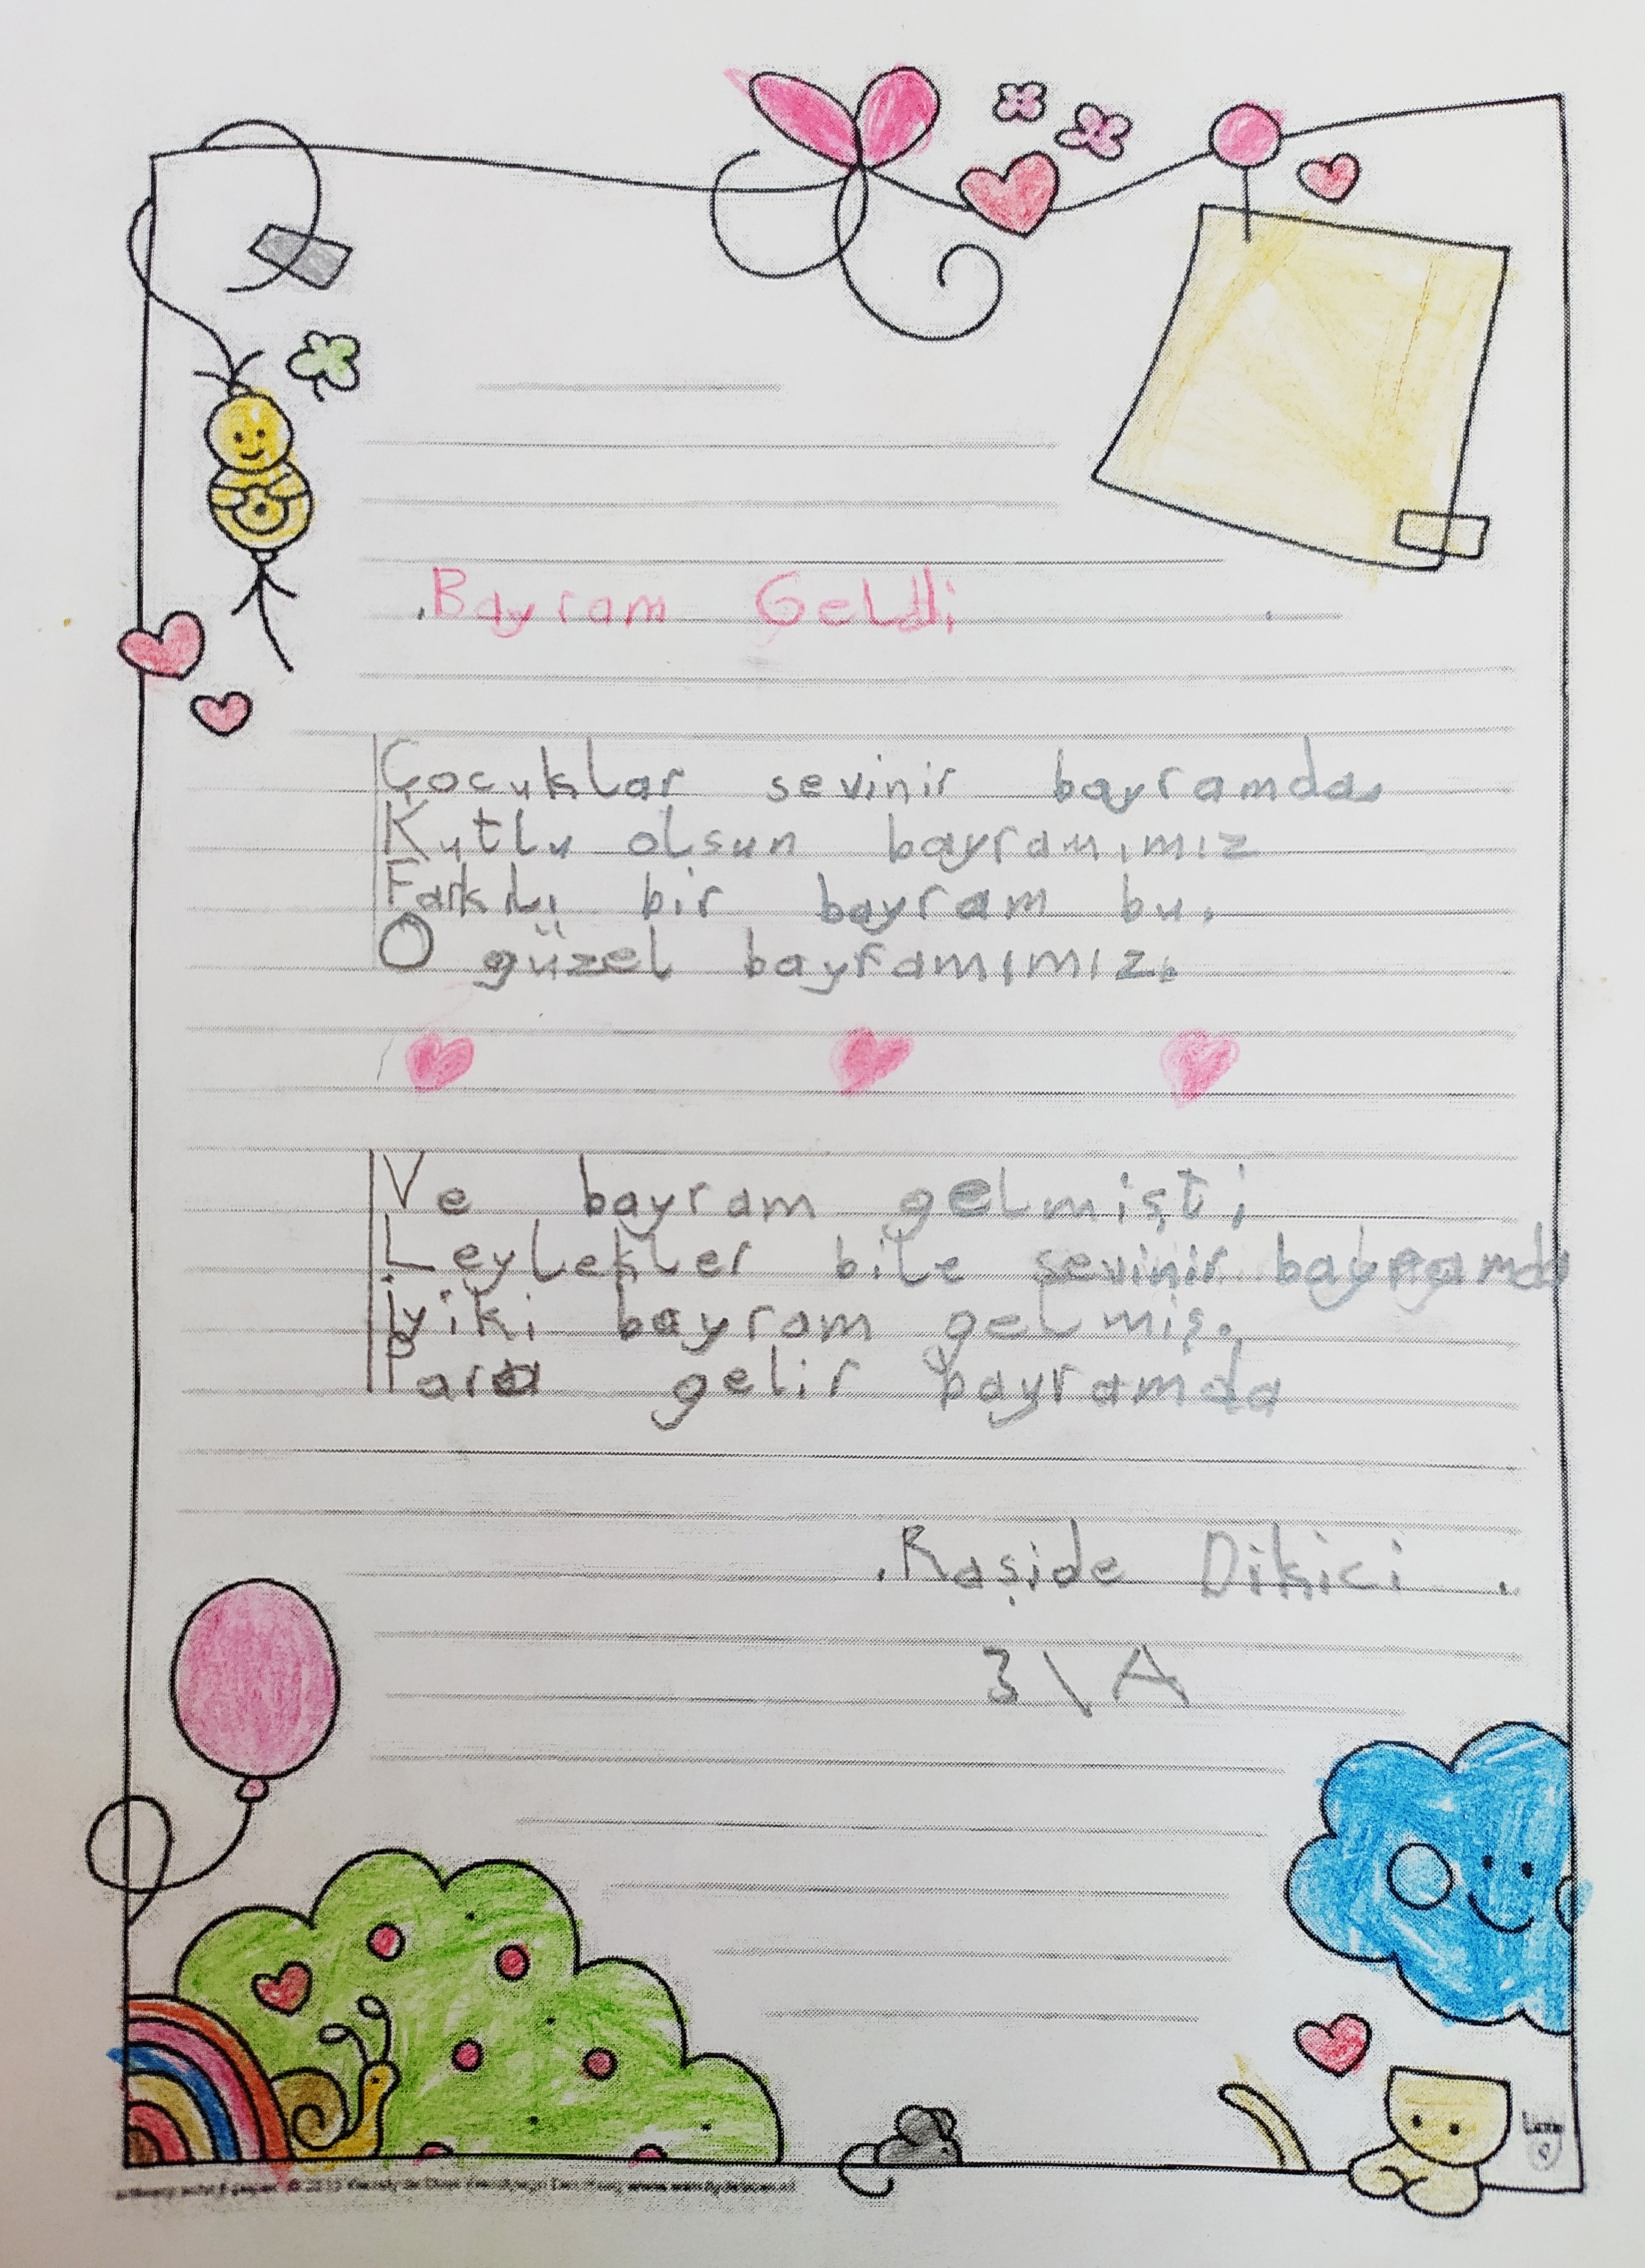 .Bayram Geldi .
Çocuklar sevinir bayramda
Kutlu olsun bayramımız
Farklı bir bayram bu.
O güzel bayramımız.
Ve bayram gelmişti
Leylekler bile sevinir bayramda
İyiki bayram gelmiş.
Para gelir bayramda
.Raşide Dikici .
3\A